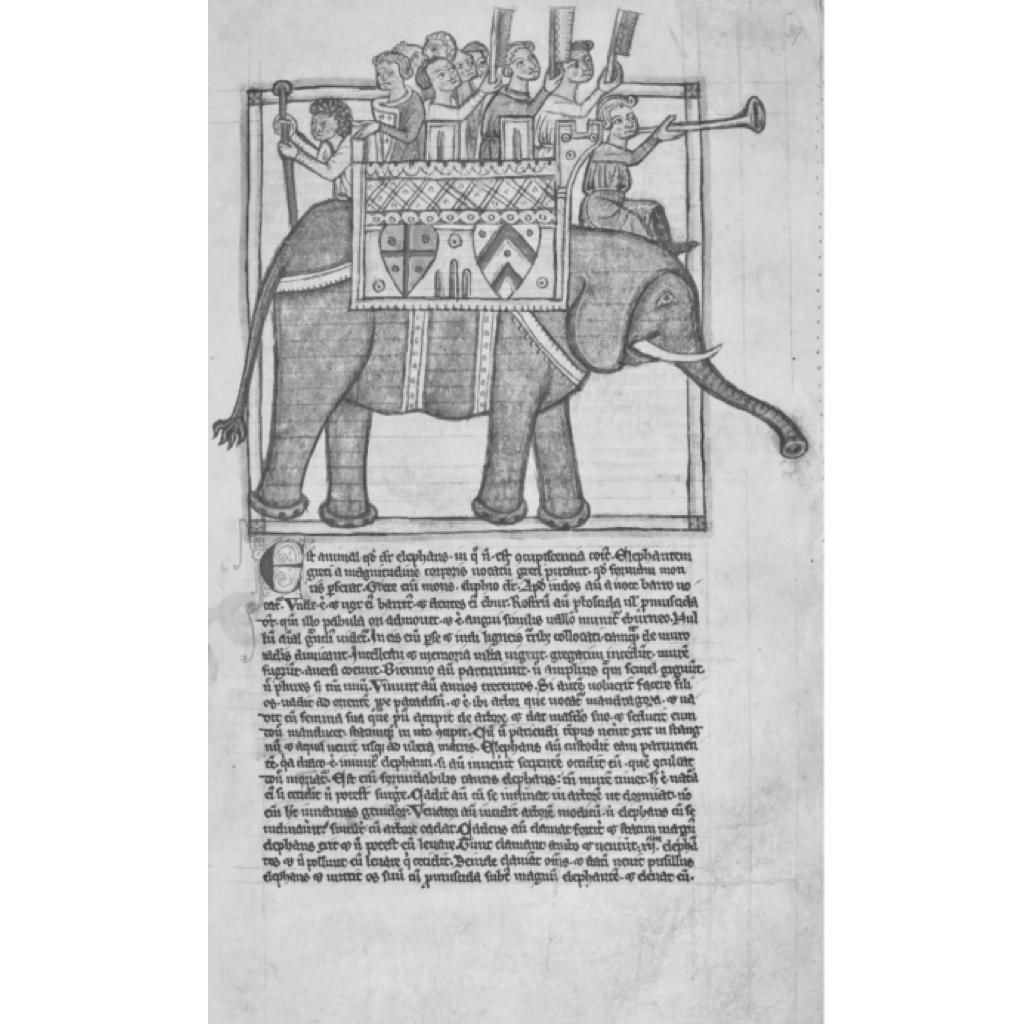 Est animal qd dr̄ elephans. in q̄ n̄. est ↄcupiscencia coit̄. Elephantem
greci a magnitudine corporis uocatū greci putant. qd formam mon
tis p̄ferat. Grece eni mons. eliphio dr̄. Apd indos aū a uoce barro uo
cat̄. Vnde. ē. ⁊ uox ei barrit. ⁊ dentes ei ebur. Rostrū aū p̄boscida ul̄. p̄muscida
qm̄ illo pabula ori admouet. ⁊ ē. angui similis uallo munit̄ eburneo. Nul
lū aīal grādi᷒ uidet̄. In eis eni pse ⁊ indi ligneis t̄rib᷒ collocati. tamq̄ de muro
iaculis dimicant. Intellectu ⁊ memoria multa uigent. gregatim incedūt. murē
fugiūt. auersi coeunt. Biennio aū parturiunt. n̄ amplius qm̄ semel gignūt.
n̄ plures s; tm̄ unū. Viuunt aū annos trecentos. Si autē uoluerit facere fili
os. uadit ad orientē ppe paradisū. ⁊ ē. ibi arbor que uocat̄ mandragora. ⁊ ua
dit cū femina sua que pri᷒ accipit de arbore. ⁊ dat masculo suo. ⁊ seducit eum
don̄ manducet. statimq; in uto ↄcipit. Cū u̓ pariendi tēpus uenerit exit in stang
nū. ⁊ aqua uenit usq; ad ubera matris. Elephans aū custodit eam parturien
tē. q̄a draco. ē. inimic᷒ elephanti. si aū inuenit serpentē occidit eū. que ↄculcat
don̄ moriat̄. Est eni formidabilis tauris elephans: tn̄ murē timet. h̄. ē. nat̄a
ei᷒ si cecidit n̄ potest surg̓e. Cadit aū cū se inclinat in arborē ut dormiat. n̄
eni h̄t iuncturas genuclor̄. Venator aū incidit arborē modicū. ut elephans cū se
inclinau̓it: simul cū arbore cadat. Cadens aū clamat fortit̓. ⁊ statim magn᷒
elephans exit ⁊ n̄ potest eū leuare. Tunc clamant ambo ⁊ ueniūt. xij. elepha
tes ⁊ n̄ possunt eū leuare q̄ cecidit. Deinde clamāt om̄s. ⁊ statī uenit pusillus
elephans ⁊ mittit os suū cū p̄muscida subt᷒ magnū elephantē. ⁊ eleuat eū.